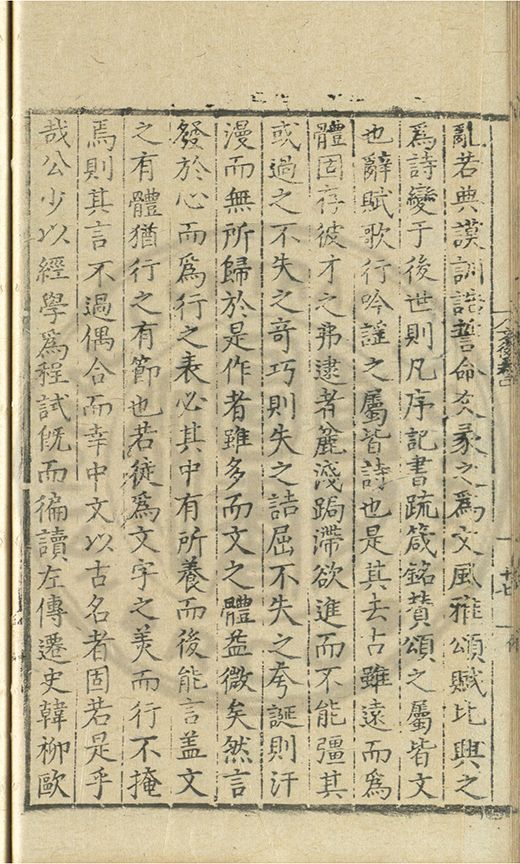 亂若典謨訓誥誓命爻彖之爲文風雅頌賦比興之
爲詩變于後世則凡序記書疏箴銘贊頌之屬皆文
也辭賦歌行吟謡之屬皆詩也是其去古雖遠而爲
體固存彼才之弗逮者麄淺跼滯欲進而不能彊其
或過之不失之奇巧則失之詰屈不失之夸誕則汗
漫而無所歸於是作者雖多而文之體益微矣然言
發於心而爲行之表必其中有所養而後能言盖文
之有體猶行之有節也若徒爲文字之美而行不掩
焉則其言不過偶合而幸中文以古名者固若是乎
哉公少以經學爲程試旣而徧讀左傳遷史韓柳歐
十七